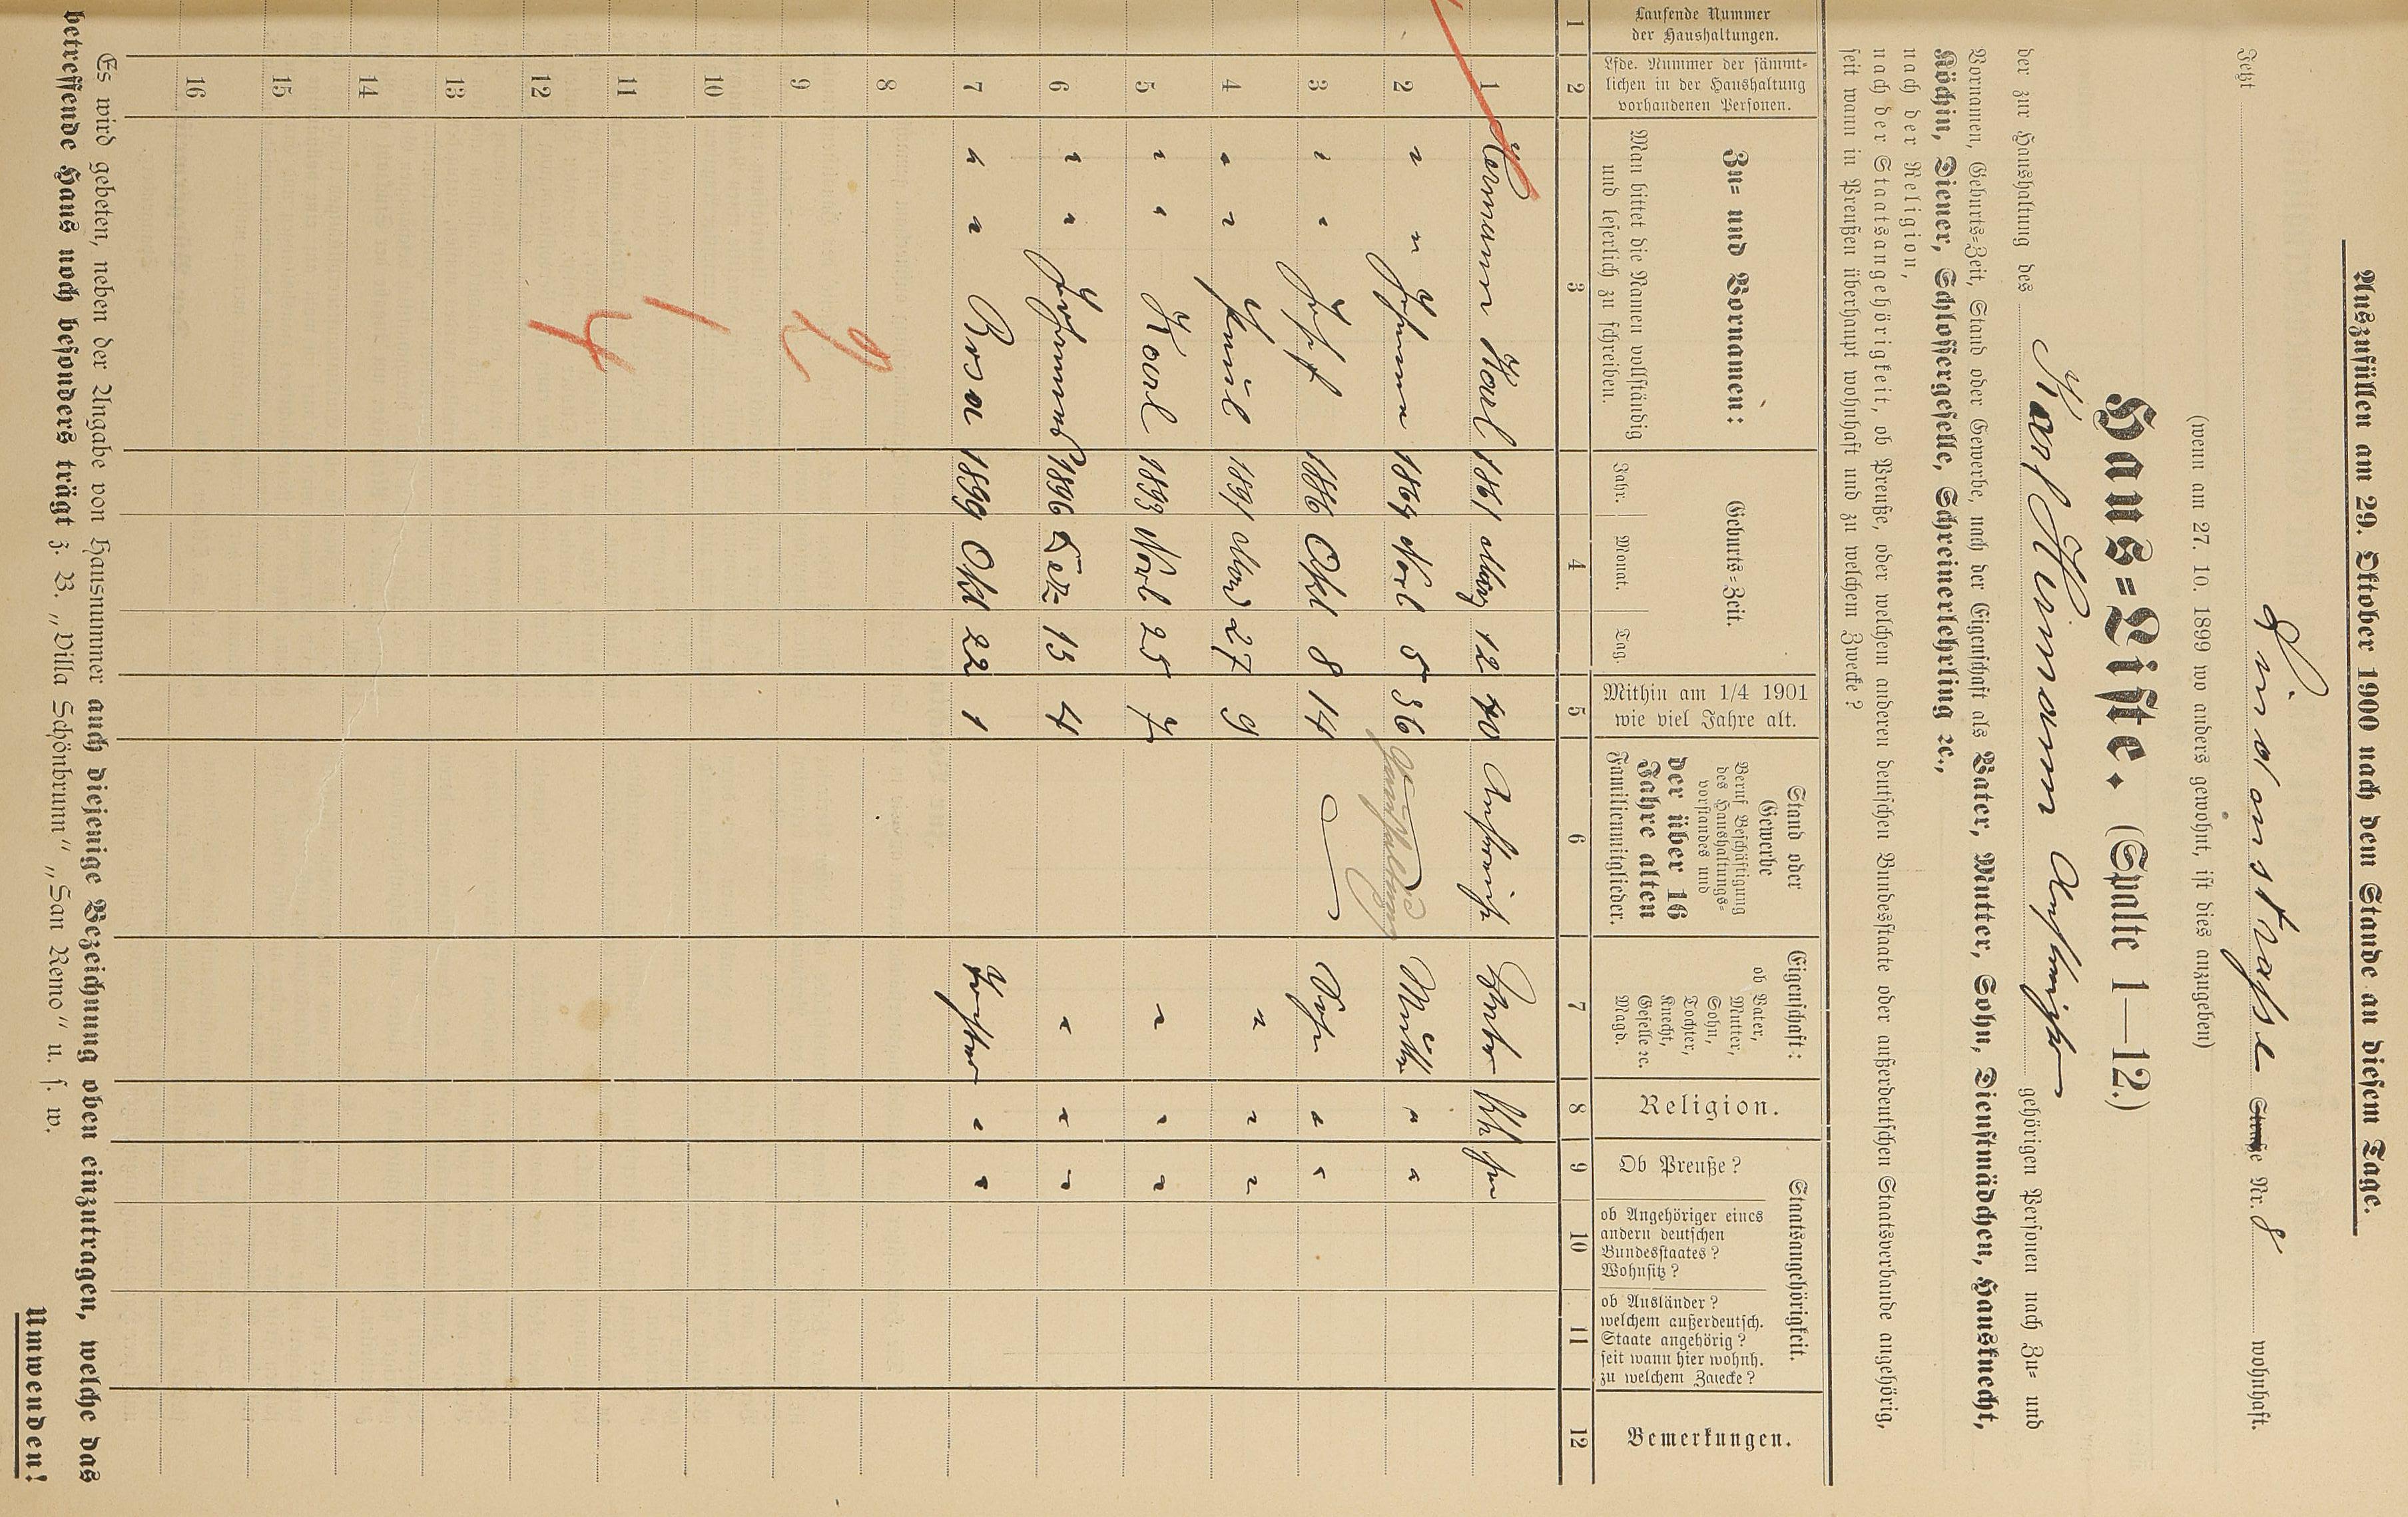 Auszufüllen am 29. Oktober 1900 nach dem Stande an diesem Tage.
Jetzt Linsenstrasse Straße Nr. 8 wohnhaft.
(wenn am 27. 10. 1899 wo anders gewohnt, ist dies anzugeben)
Haus=Liste. (Spalte 1—12.)
der zur Haushaltung des Karl Hermann gehörigen Personen nach Zu= und
Vornamen, Geburts=Zeit, Stand oder Gewerbe, nach der Eigenschaft als Vater, Mutter, Sohn, Dienstmädchen, Hausknecht,
Köchin, Diener, Schlossergeselle, Schreinerlehrling 2c.,
nach der Religion,
nach der Staatsangehörigkeit, ob Preuße, oder welchem anderen deutschen Bundesstaate oder außerdeutschen Staatsverbande angehörig,
seit wann in Preußen überhaupt wohnhaft und zu welchem Zwecke?
Laufende Nummer der Haushaltungen.
Lfde. Nummer der sämmt=lichen in der Haushaltung vorhandenen Personen.
Zu= und Vornamen:
Man bittet die Namen vollständig und leserlich zu schreiben.
Geburts=Zeit.
Jahr. Monat. Tag.
Mithin am 1/4 1901 wie viel Jahre alt.
Stand oder Gewerbe
Beruf Beschäftigung des Haushaltungs=vorstandes und
der über 16 Jahre alten
Familienmitglieder.
Eigenschaft:
ob Vater, Mutter, Sohn, Tochter, Knecht, Geselle 2c. Magd.
Religion.
Staatsangehörigkeit.
Ob Preuße?
ob Angehöriger eines andern deutschen Bundesstaates? Wohnsitz?
ob Ausländer? welchem außerdeutsch. Staate angehörig? seit wann hier wohnh. zu welchem Zwecke?
Bemerkungen.
1 2 3 4 5 6 7 8 9 10 11 12
1 Hermann Karl 1861 März 12 40 Vater
2 " " Johanna 1864 5 36 Haushaltung Mutter " "
3 " " Josef 1886 Okt 8 14 Sohn " "
4 " " 1891 27 9 " " "
5 " " Karl 1893 25 7 " " "
6 " " Johann 1896 13 4 " " "
7 " " Rosa 1899 Okt 22 1 Tochter " "
8
9
10
11
12
13
14
15
16
2
1
4
Es wird gebeten, neben der Angabe von Hausnummer auch diejenige Bezeichnung oben einzutragen, welche das
betreffende Haus noch besonders trägt z. B. „Villa Schönbrunn" „San Remo" u. s. w.
Umwenden!